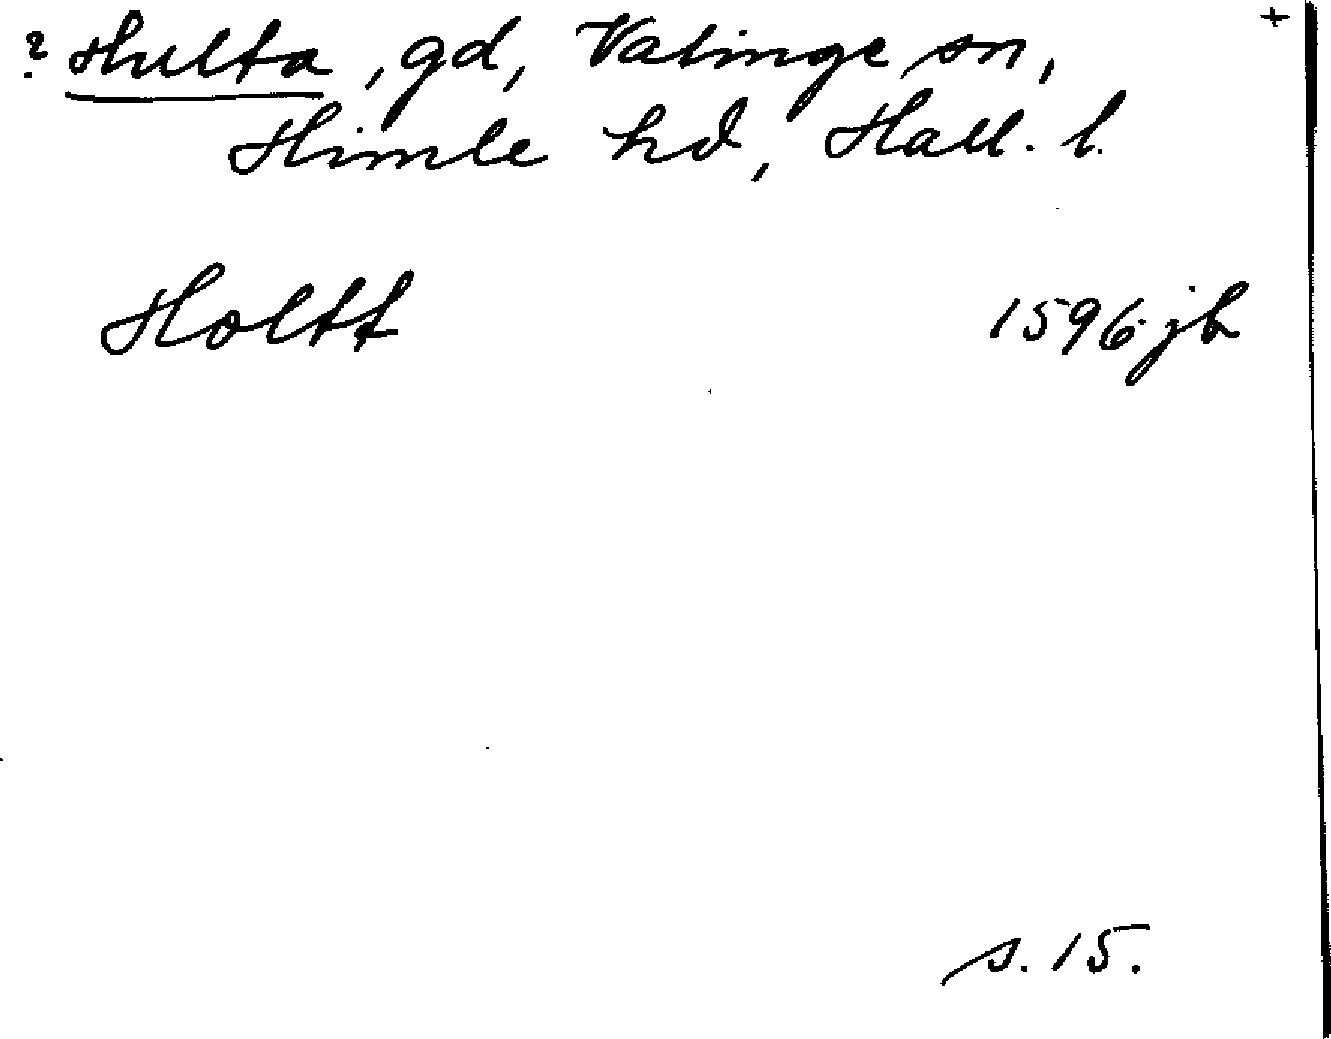 +
? Hulta, gd, Valinge sn,
Himle hd, Hall. l.
Holtt 1596 jb
s. 15.